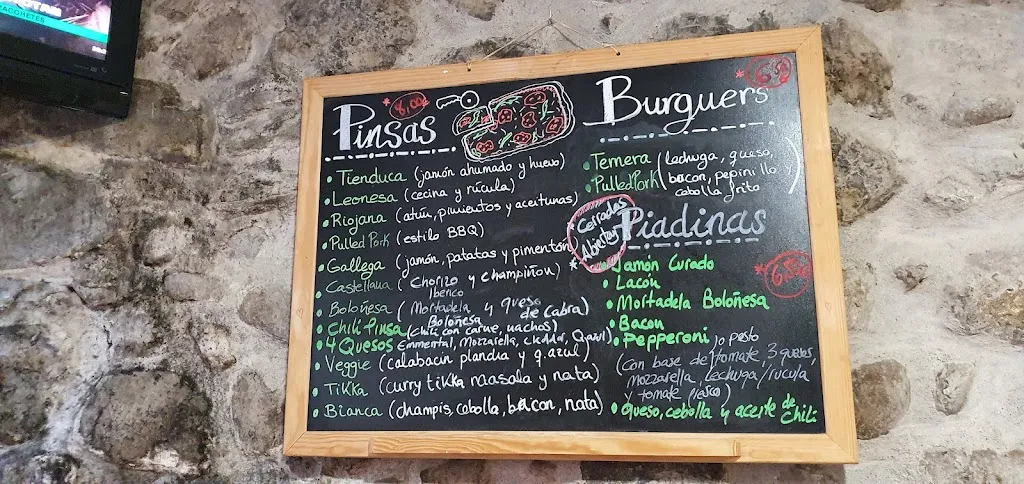 Pinsas
8,00
• Tienduca (jamón ahumado y huevo)
• Leonesa (cecina y rúcula)
• Riojana (atún, pimientos y aceitunas)
• Pulled Pork (estilo BBQ)
• Gallega (jamón, patatas y pimentón)
• Castellana (Chorizo y Champiñon)
Iberico
• Boloñesa (Mortadela y queso de cabra)
Boloñesa
• Chili Pinsa (chili con carne, nachos)
• 4 Quesos Emmental, Mozzarella, cheddar, Q.azul)
• Veggie (calabacin plancha y q. azul)
• Tikka (curry tikka masala y nata)
• Bianca (champis, cebolla, bacon, nata)
Burguers
• Ternera (lechuga, queso,
• Pulled Pork bacon, pepinillo y
cebolla frita)
* Cerradas
* Abiertas
Piadinas
• Jamón Curado
• Lacón
• Mortadela Boloñesa
• Bacon
• Pepperoni
(con base de tomate, 3 quesos,
o pesto
mozzarella, lechuga/rucula
y tomate fresco)
• queso, cebolla y aceite de Chili